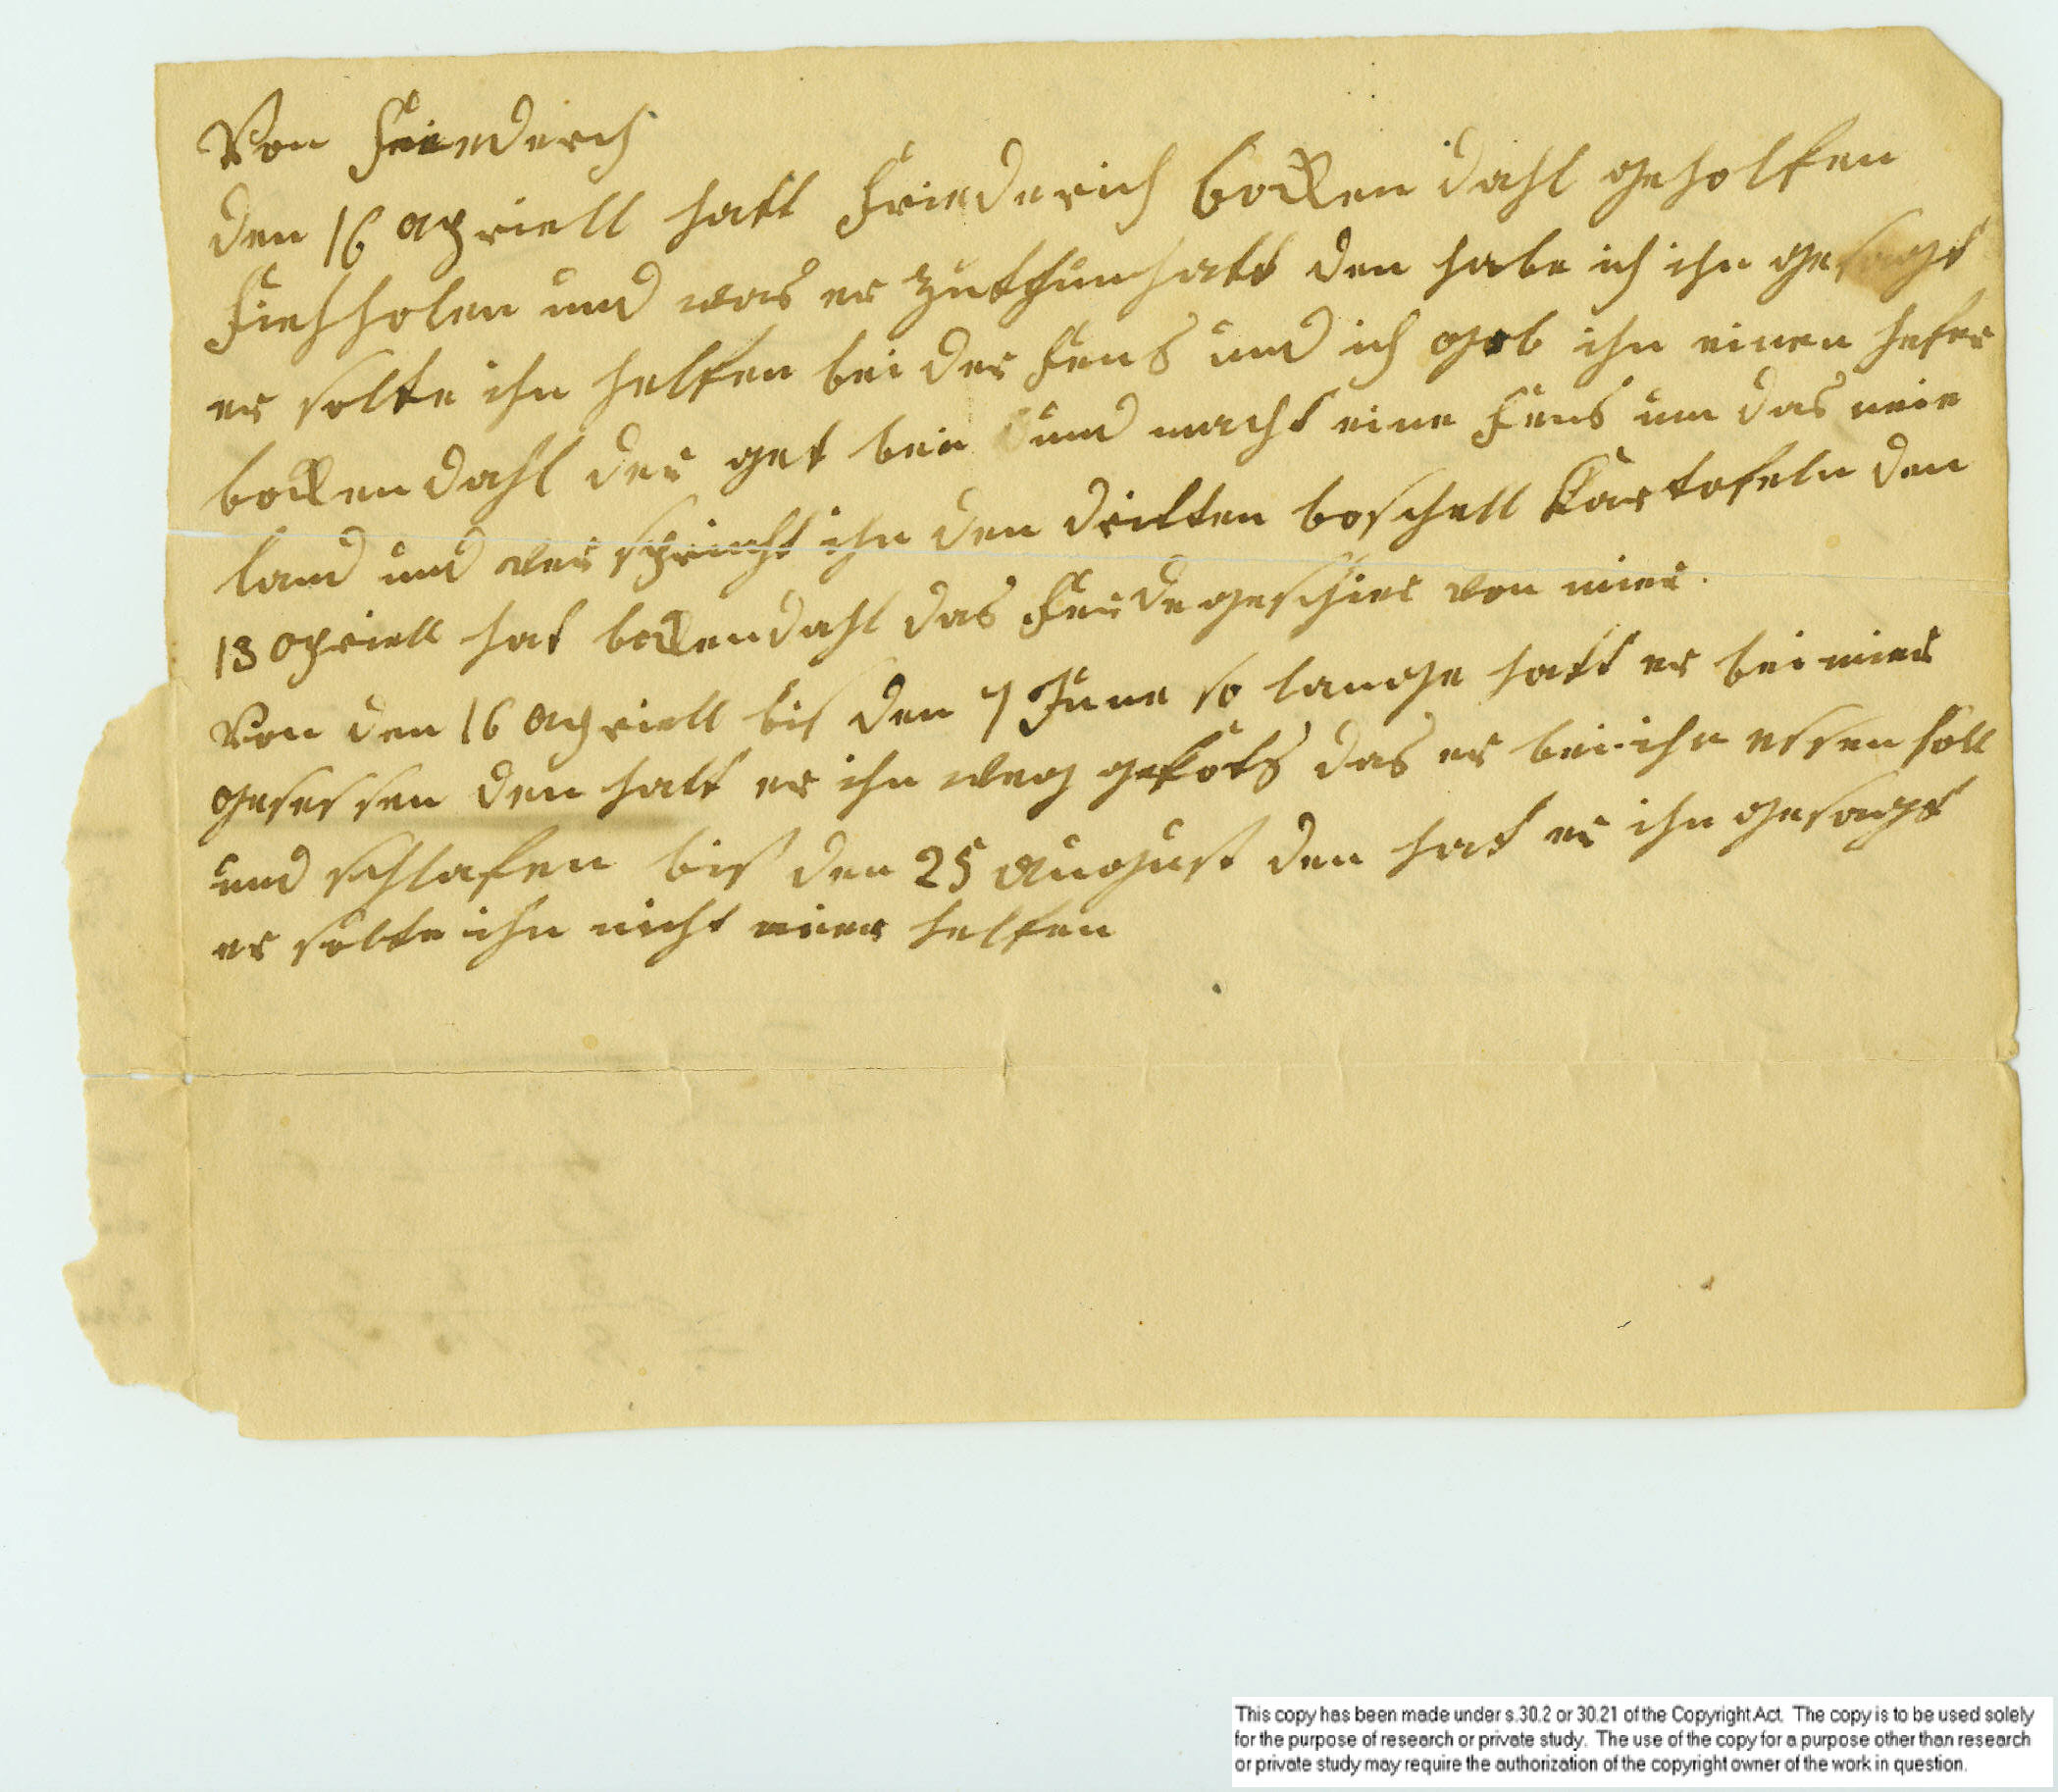 Von Friederch
den 16 apriell hatt Friederich bockendahl geholfen
Fiehholen und was er zuthun hatt den habe ich ihn gesagt
er solte ihn helfen bei der Fens und ich gab ihn einen
bockendahl der get bei und macht eine Fens um das neie
land und verspricht ihn den dritten boschell Kartofeln den
13 apriell hat bockendahl das Ferdegeschier von mier.
Von den 16 apriell bis den 7 June so lange hatt er bei mier
gesessen den hatt er ihn weg das er bei ihn essen soll
und schlafen bis den 25 august den hat er ihn gesagt
er solte ihn nicht mier helfen
This copy has been made under s.30.2 or 30.21 of the Copyright Act. The copy is to be used solely
for the purpose of research or private study. The use of the copy for a purpose other than research
or private study may require the authorization of the copyright owner of the work in question.